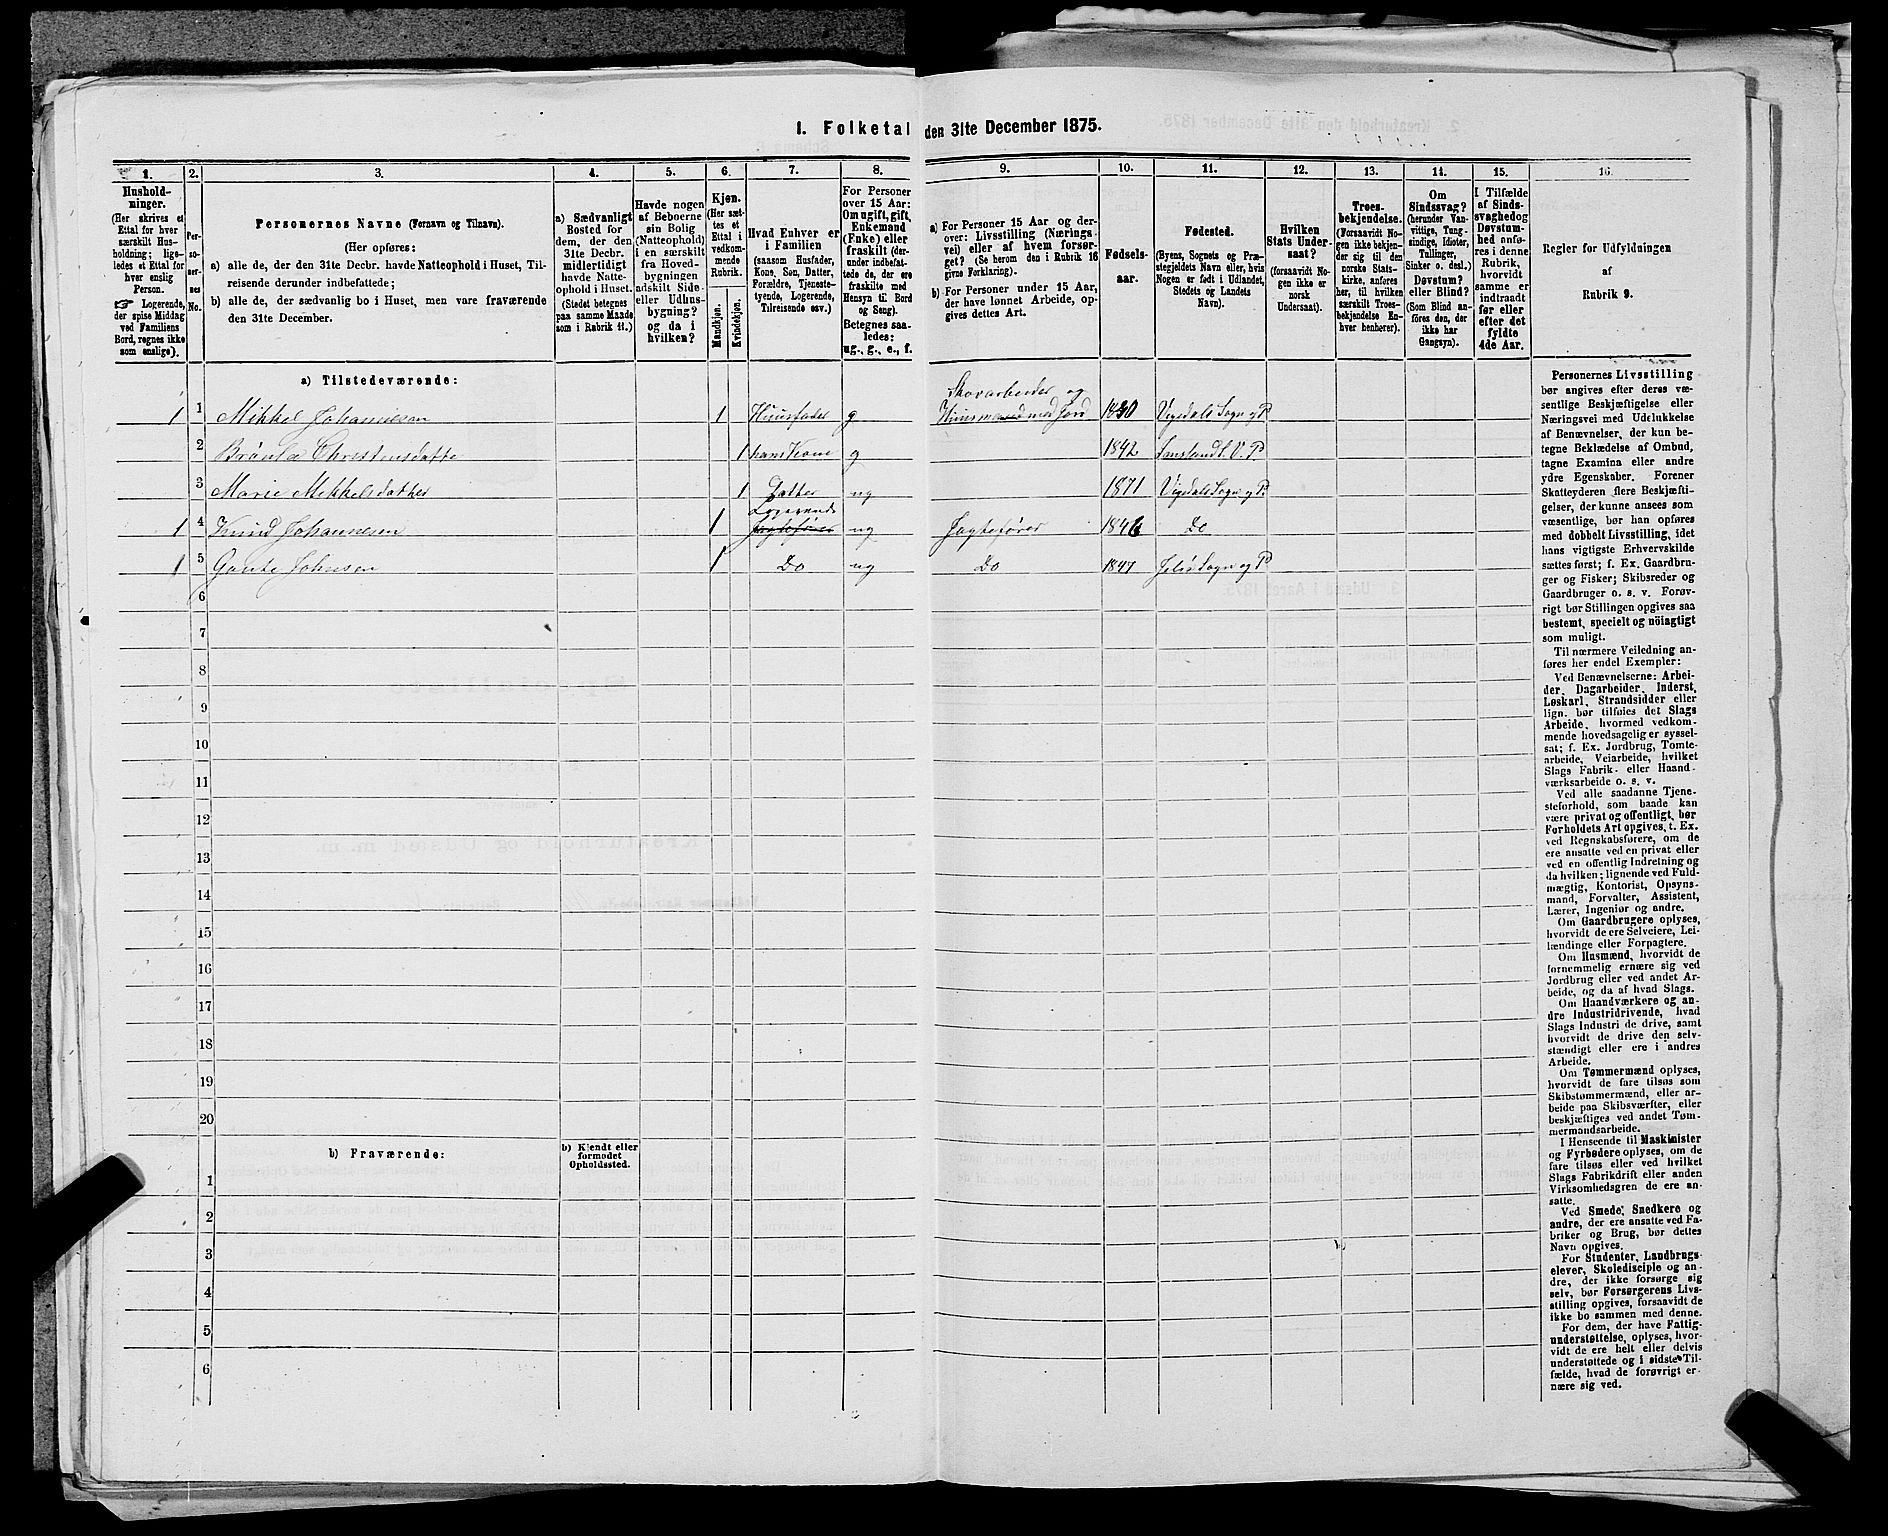 I. Folketal den 31te December 1875.
1. 2. 3. 4. 5. 6. 7. 8. 9. 10. 11. 12. 13. 14. 15. 16.
Hushold-
ninger.
(Her skrives et
Ettal for hver
særskilt Hus-
holdning; lige-
ledes et Ettal for
hver enslig
Person.
☞ Logerende,
der spise Middag
ved Familiens
Bord, regnes ikke
som enslige).
Per-
so-
ner-
nes
No.
Personernes Navne (Fornavn og Tilnavn).
(Her opføres:
a) alle de, der den 31te Decbr. havde Natteophold i Huset, Til-
reisende derunder indbefattede;
b) alle de, der sædvanlig bo i Huset, men vare fraværende
den 31te December.
a) Sædvanligt
Bosted for
dem, der den
31te Decbr.
midlertidigt
havde Natte-
ophold i Huset.
(Stedet betegnes
paa samme Maade
som i Rubrik 11.)
Havde nogen
af Beboerne
sin Bolig
(Natteophold)
i en særskilt
fra Hoved-
bygningen
adskilt Side-
eller Udhus-
bygning?
og da i
hvilken?
Kjøn.
(Her sæt-
tes et
Ettal i
vedkom-
mende
Rubrik.
Mandkjøn.
Kvindekjøn.
Hvad Enhver er
i Familien
(saasom Husfader,
Kone, Søn, Datter,
Forældre, Tjeneste-
tyende, Logerende,
Tilreisende osv.)
For Personer
over 15 Aar:
Om ugift, gift,
Enkemand
(Enke) eller
fraskilt (der-
under indbefat-
tede de, der ere
fraskilte med
Hensyn til Bord
og Seng).
Betegnes saa-
ledes:
ug., g., e., f.
a) For Personer 15 Aar og der-
over: Livsstilling (Nærings-
vei) eller af hvem forsør-
get? (Se herom den i Rubrik 16
givne Forklaring).
b) For Personer under 15 Aar,
der have lønnet Arbeide, op-
gives dettes Art.
Fødsels-
aar.
Fødested.
(Byens, Sognets og Præ-
stegjeldets Navn eller, hvis
Nogen er født i Udlandet,
Stedets og Landets
Navn).
Hvilken
Stats Under-
saat?
(forsaavidt No-
gen ikke er
norsk
Undersaat).
Troes-
bekjendelse.
(Forsaavidt No-
gen ikke bekjen-
der sig til den
norske Stats-
kirke, anføres
her, til hvilken
særskilt Troes-
bekjendelse En-
hver henhører).
Om
Sindssvag?
(herunder Van-
vittige, Tung-
sindige, Idioter,
Tullinger,
Sinker o. desl.)
Døvstum?
eller Blind?
(Som Blind an-
føres den, der
ikke har
Gangsyn).
I Tilfælde
af Sinds-
svaghed og
Døvstum-
hed anfø-
res i denne
Rubrik,
hvorvidt
samme er
indtraadt
før eller
efter det
fyldte
4de Aar.
Regler for Udfyldningen
af
Rubrik 9.
a) Tilstedeværende:
Skovarbeider og
1 1 Mikkel Johannesen 1 Huusfader g Huusmand med Jord 1830 Vegdals Sogn og P
2 Christensdatter 1 hans Kone g 1842 V. P
3 Marie Mikkelsdatter 1 Datter ug 1871 Vegdals Sogn og P.
Logerende
1 4 Knud Johannesen 1 Jagtefører ug Jagtefører 1846 Do
1 5 Gaute Johnsen 1 Do ug Do 1847 Sogn og P
6
7
8
9
10
11
12
13
14
15
16
17
18
19
20
b) Fraværende:
b) Kjendt eller
formodet
Opholdssted.
1
2
3
4
5
6
Personernes Livsstilling
bør angives efter deres væ-
sentlige Beskjæftigelse eller
Næringsvei med Udelukkelse
af Benævnelser, der kun be-
tegne Beklædelse af Ombud,
tagne Examina eller andre
ydre Egenskaber. Forener
Skatteyderen flere Beskjæfti-
gelser, der kunne ansees som
væsentlige, bør han opføres
med dobbelt Livsstilling, idet
hans vigtigste Erhvervskilde
sættes først; f. Ex. Gaardbru-
ger og Fisker; Skibsreder og
Gaardbruger o. s. v. Forøv-
rigt bør Stillingen opgives saa
bestemt, specielt og nøiagtigt
som muligt.
Til nærmere Veiledning an-
føres her endel Exempler:
Ved Benævnelserne: Arbei-
der, Dagarbeider, Inderst,
Løskarl, Strandsidder eller
lign. bør tilføies det Slags
Arbeide, hvormed vedkom-
mende hovedsagelig er syssel-
sat; f. Ex. Jordbrug, Tomte-
arbeide, Veiarbeide, hvilket
Slags Fabrik- eller Haand-
værksarbeide o. s. v.
Ved alle saadanne Tjene-
steforhold, som baade kan
være privat og offentligt, bør
Forholdets Art opgives, t. Ex.
ved Regnskabsførere, om de
ere ansatte ved en privat eller
ved en offentlig Indretning og
da hvilken; lignende ved Fuld-
mægtig, Kontorist, Opsyns-
mand, Forvalter, Assistent,
Lærer, Ingeniør og andre.
Om Gaardbrugere oplyses,
hvorvidt de ere Selveiere, Lei-
lændinge eller Forpagtere.
Om Husmænd, hvorvidt de
fornemmelig ernære sig ved
Jordbrug eller ved andet Ar-
beide, og da af hvad Slags.
Om Haandværkere og an-
dre Industridrivende, hvad
Slags Industri de drive, samt
hvorvidt de drive den selv-
stændigt eller ere i andres
Arbeide.
Om Tømmermænd oplyses,
hvorvidt de fare tilsøs som
Skibstømmermænd, eller ar-
beide paa Skibsværfter, eller
beskjæftiges ved andet Tøm-
mermandsarbeide.
I Henseende til Maskinister
og Fyrbødere oplyses, om de
fare tilsøs eller ved hvilket
Slags Fabrikdrift eller anden
Virksomhedsgren de ere an-
satte.
Ved Smede, Snedkere og
andre, der ere ansatte ved Fa-
briker og Brug, bør dettes
Navn opgives.
For Studenter, Landbrugs-
elever, Skoledisciple og an-
dre, der ikke forsørge sig
selv, bør Forsørgerens Livs-
stilling opgives, forsaavidt de
ikke bo sammen med denne.
For dem, der have Fattig-
understøttelse, oplyses, hvor-
vidt de ere helt eller delvis
understøttede og i sidste Til-
fælde, hvad de forøvrigt er-
nære sig ved.